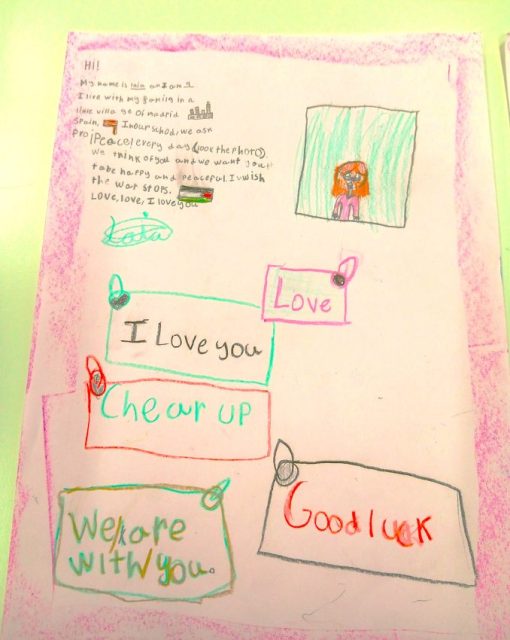 Hi!
My name is Lola an I am 9
I live with my family in a
little villa ge of Madrid
Spain, In our school, we ask
for ¡Peace! every day (look the photo)
We think of you and we want you
to be happy and peaceful. I wish
the war stops.
LOVE, love, I love you
Lola
Love
I Love you
Chear up
Good luck
We are
with you.